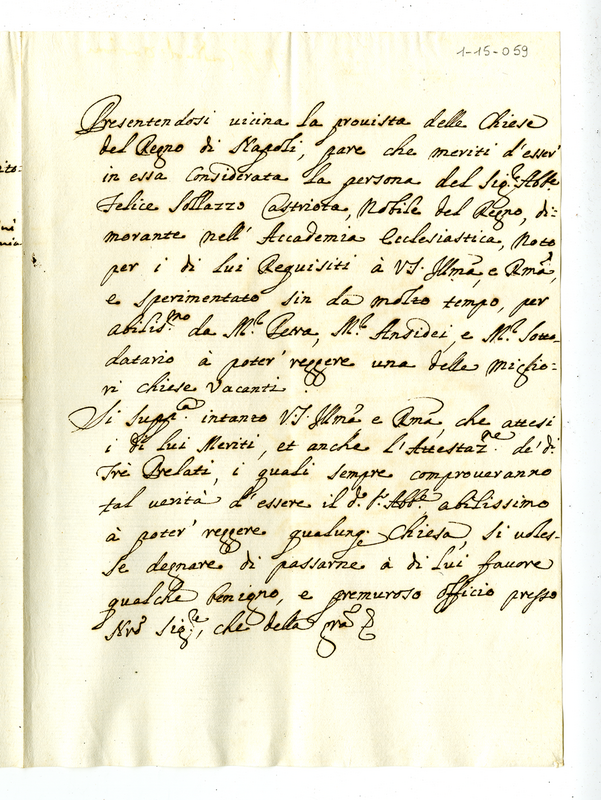 1-15-059
Presentendosi vicina la provista delle Chiese
del Regno di Napoli, pare che meriti d'esser'
in essa Considerata la persona del Sig.r Abbe
Felice Sollazzo Castriota, Nobile del Regno, di-
morante nell' Accademia Ecclesiastica, Noto
per i di lui Requisiti à V.S. Illma, e Rma,
e sperimentato sin da molto tempo, per
abiliss.mo da M.r Petra, M.r Ansidei, e M.r Sotto-
datario à poter' reggere una delle miglio-
ri chiese Vacanti.
Si supp.ca intanto V.S. Illma e Rma, che attesi
i di lui Meriti, et anche l'Attestaz.ne de' d.
Trè Prelati, i quali sempre comproveranno
tal verità d'essere il d.o S.r Abb.e abilissimo
à poter' reggere qualunq. Chiesa, si voles-
se degnare di passarne à di lui favore
qualche benigno, e premuroso officio presso
Nro Sig.re, che della gra